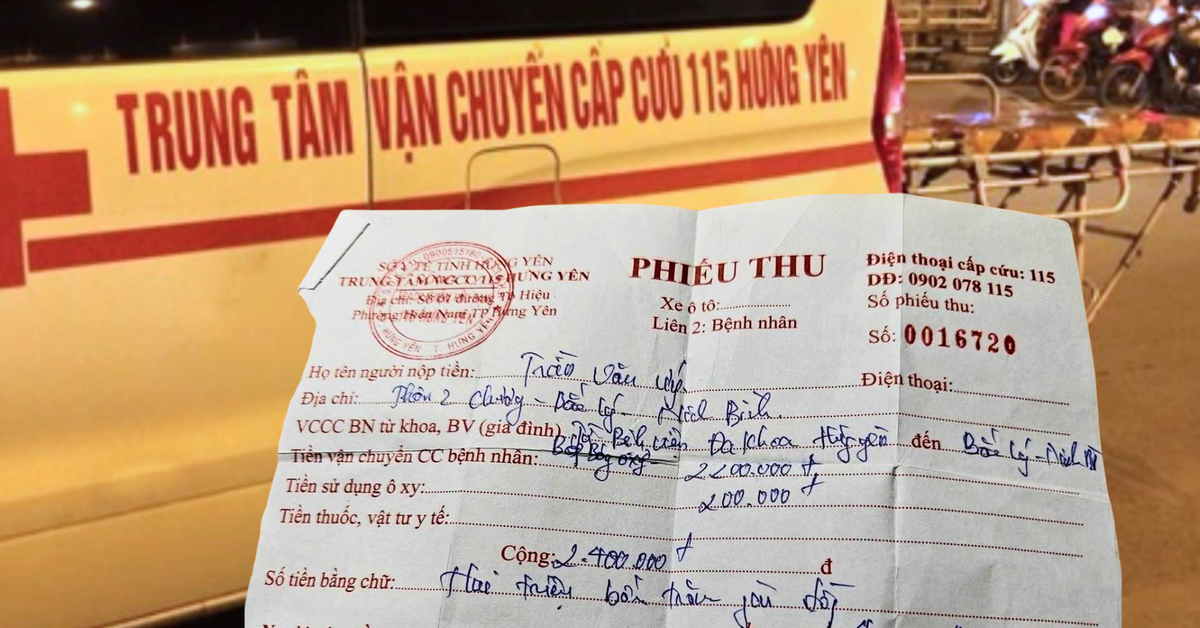 TRUNG TÂM VẬN CHUYỂN CẤP CỨU 115 HƯNG YÊN
SỞ Y TẾ TỈNH HƯNG YÊN
TRUNG TÂM VCCC 115 HƯNG YÊN
Địa chỉ: Số 01 đường Tô Hiệu
Phường Hiến Nam, TP Hưng Yên
PHIẾU THU
Xe ô tô:
Liên 2: Bệnh nhân
Điện thoại cấp cứu: 115
DĐ: 0902 078 115
Số phiếu thu:
Số: 0016720
Họ tên người nộp tiền: Trần Văn Điện thoại:
Địa chỉ: Thôn 2 - Bắc Lý - Ninh Bình
VCCC BN từ khoa, BV (gia đình) Từ Bệnh viện Đa khoa Hưng Yên đến Bắc Lý - Ninh
Tiền vận chuyển CC bệnh nhân: 2200.000đ
Tiền sử dụng ô xy: 200.000đ
Tiền thuốc, vật tư y tế:
Cộng: 2.400.000đ đ
Số tiền bằng chữ: Hai triệu bốn trăm đồng